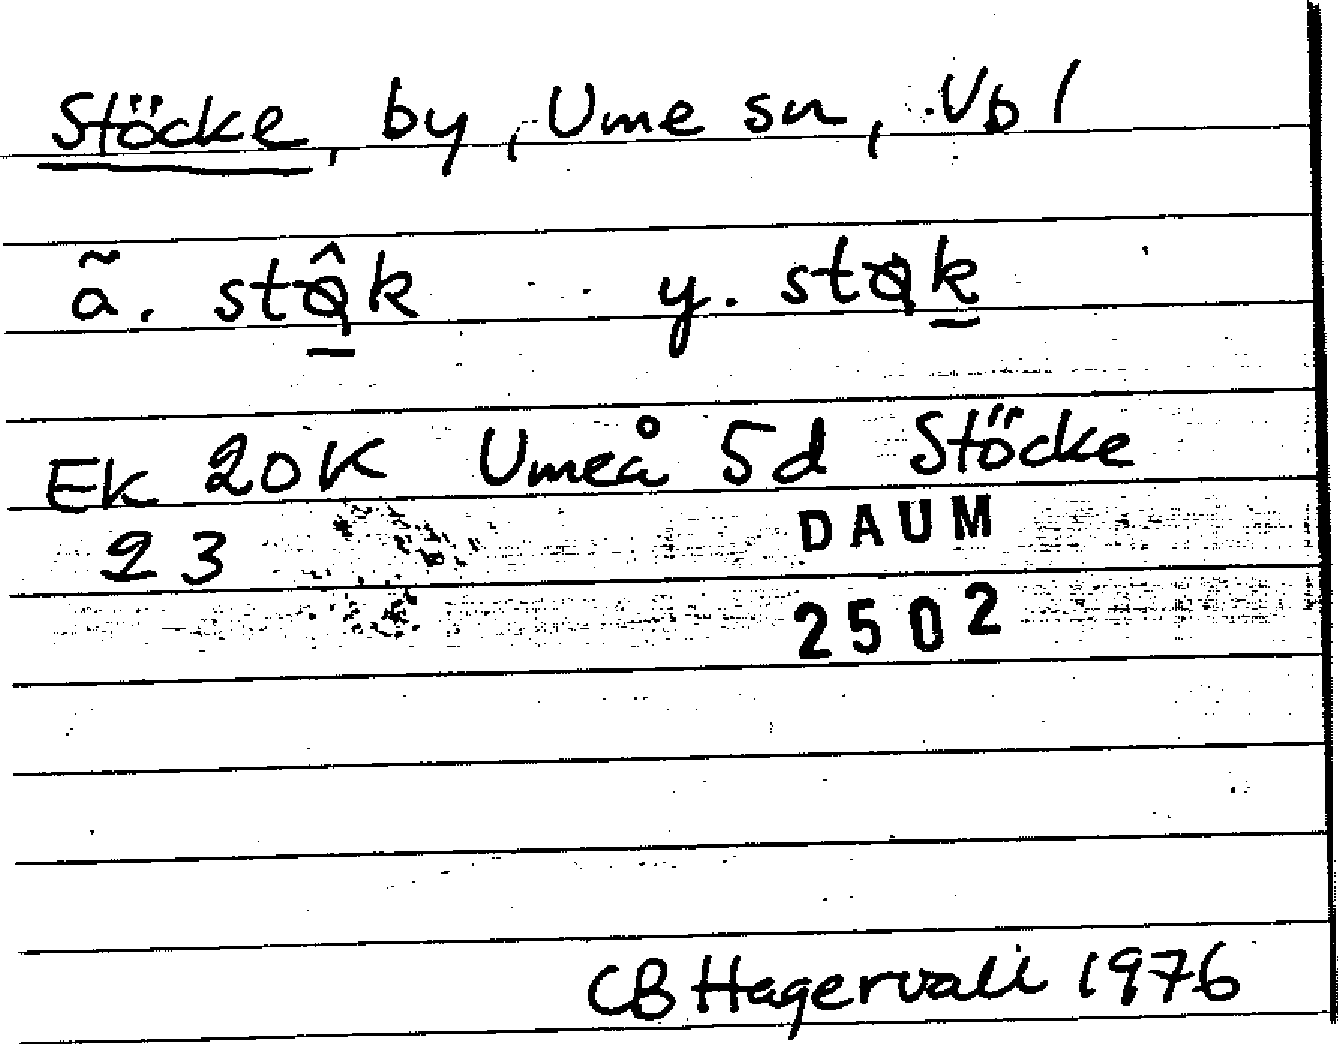 Stöcke, by, Ume sn, Vb l
ã. 
y.
Ek 20K Umeå 5d Stöcke
23
DAUM
2502
CB Hagervall 1976